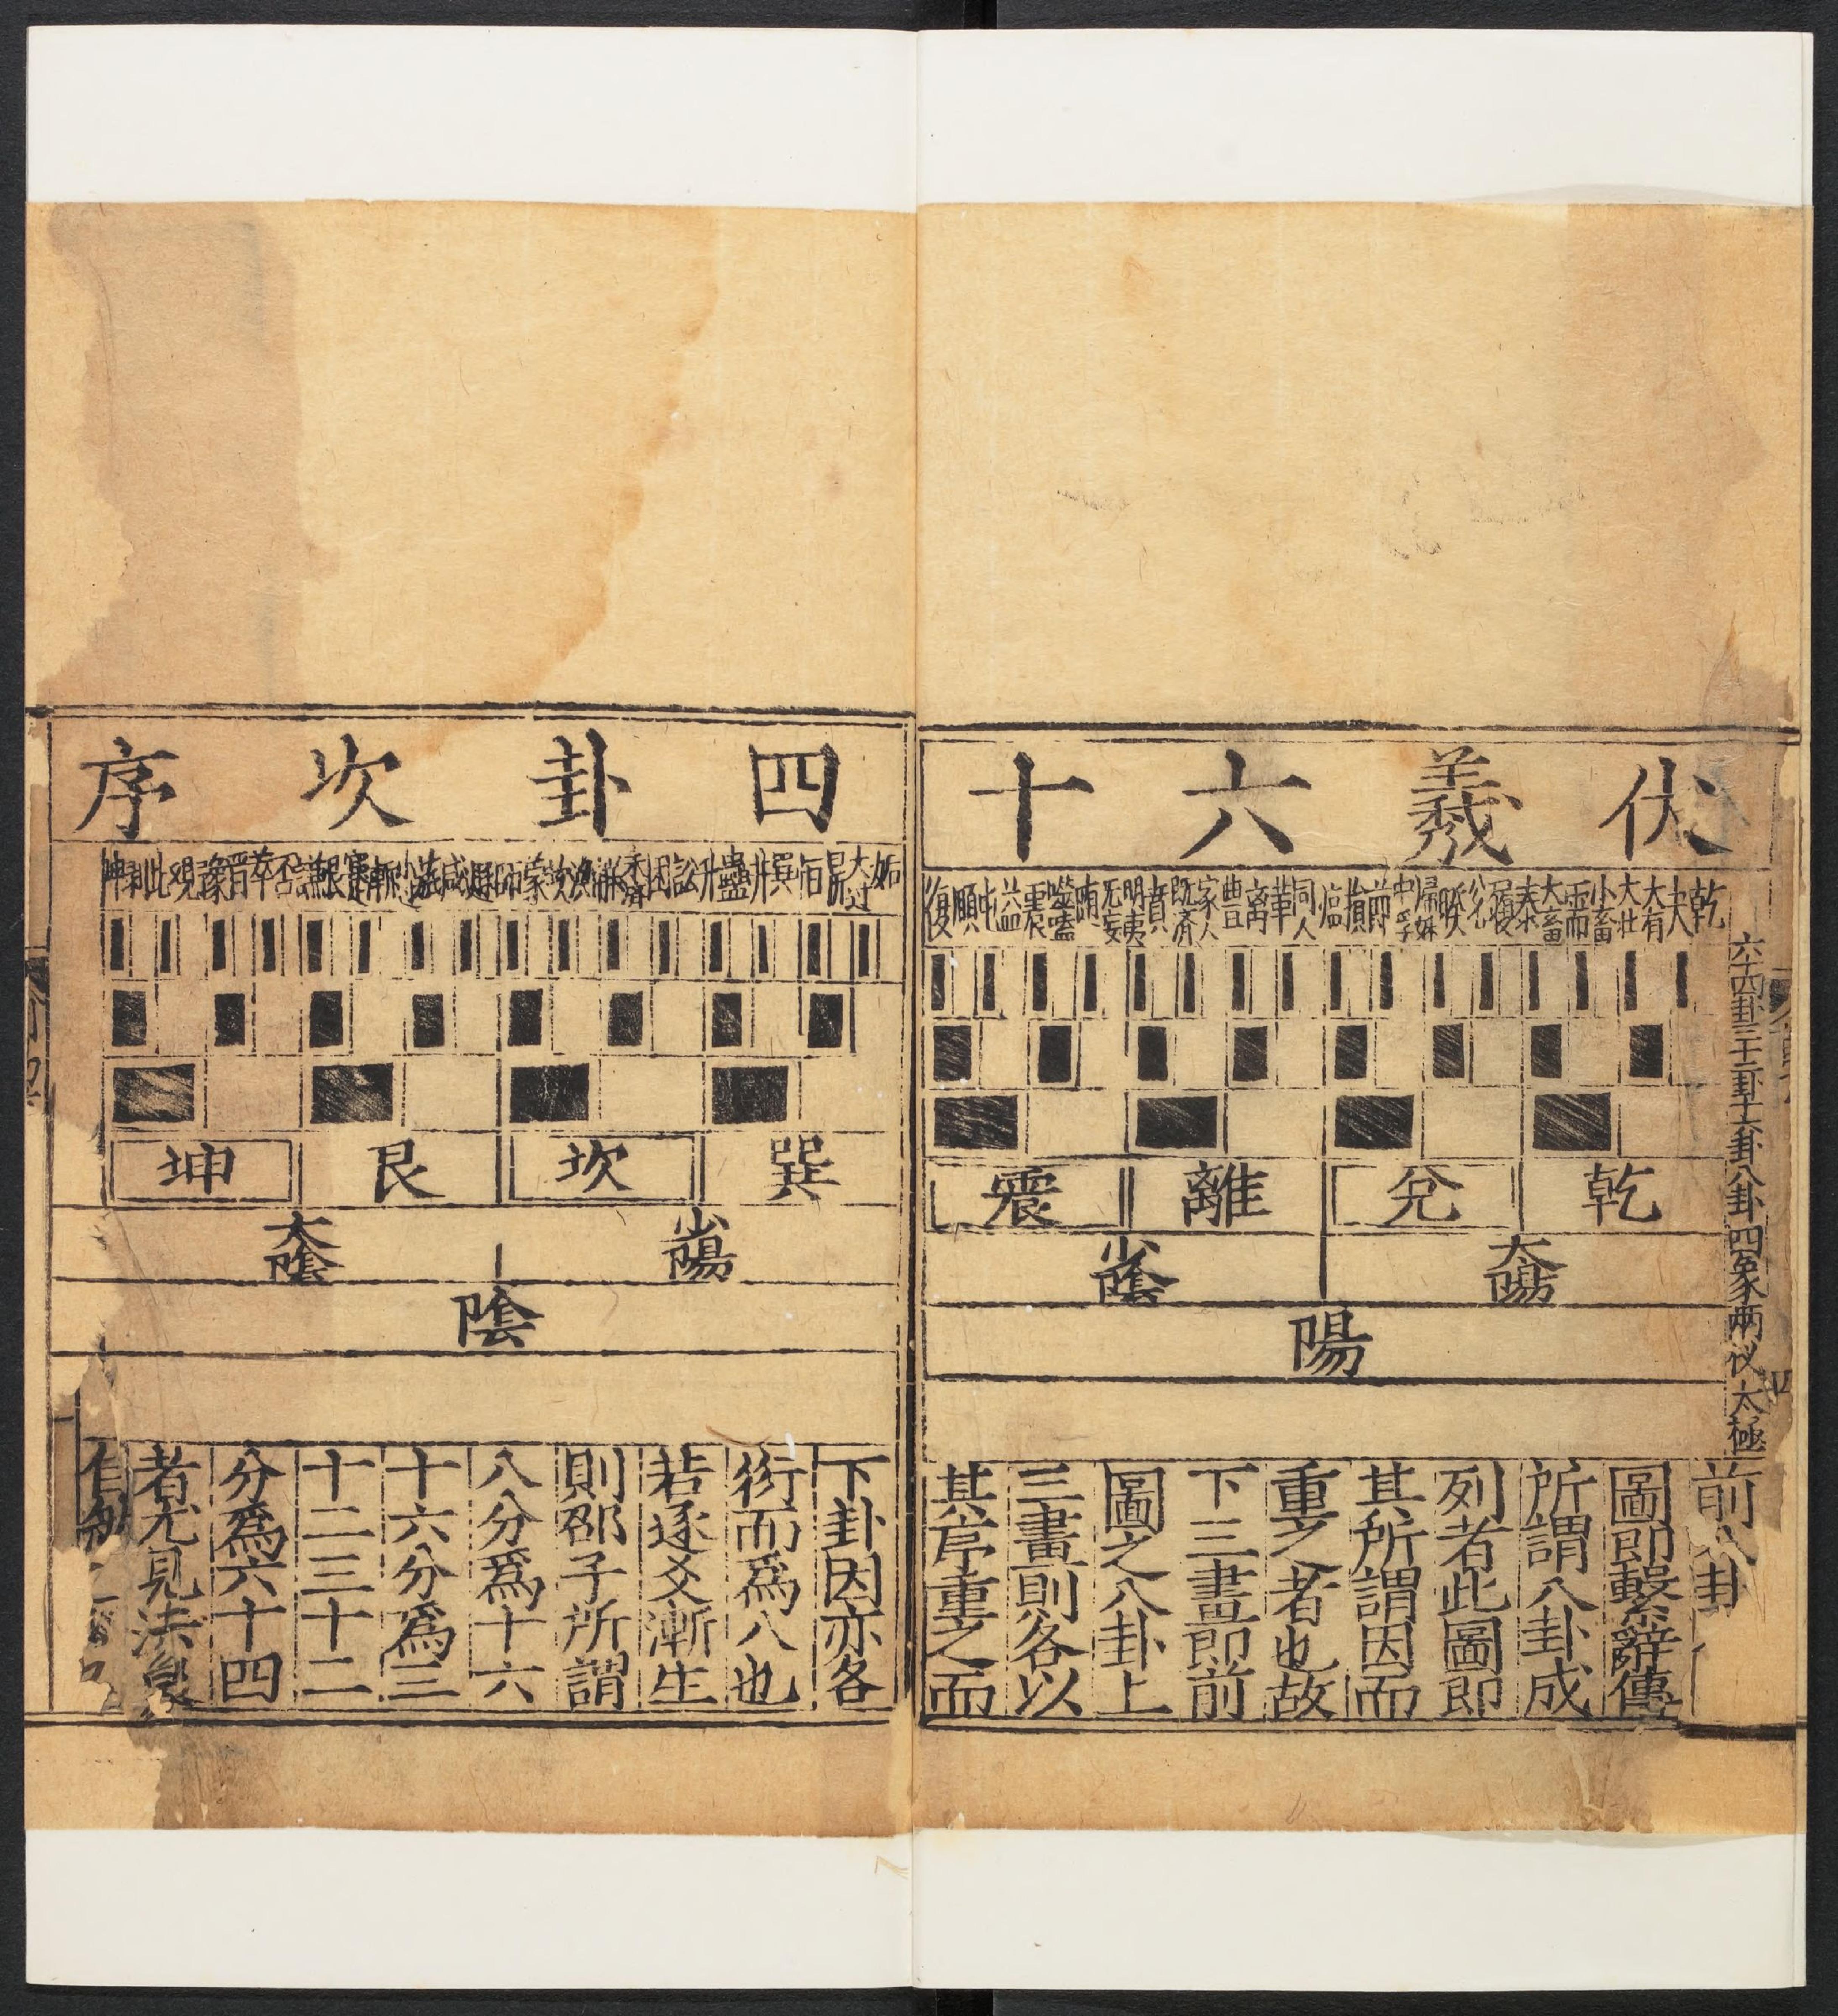 伏羲六十
六十四卦三十二卦十六卦八卦四象兩仪太極
乾夬大有大壯小畜需大畜泰履兌睽歸妹中孚節損臨同人革離豊家人既濟賁明夷无妄隨噬嗑震益屯頤復
乾兌離震
太陽少陰
陽
前八卦
圖即繫辭傳
所謂八卦成
列者此圖即
其所謂因而
重之者也故
下三畫即前
圖之八卦上
三畫則各以
其序重之而
四卦次序
姤大过鼎恒巽井蠱升訟困未濟解渙坎蒙師遯咸旅小過漸蹇艮謙否萃晋豫觀比剝坤
巽坎艮坤
少陽太陰
陰
下卦因亦各
衍而爲八也
若逐爻漸生
則邵子所謂
八分爲十六
十六分爲三
十二三十二
分爲六十四
者尤見法象